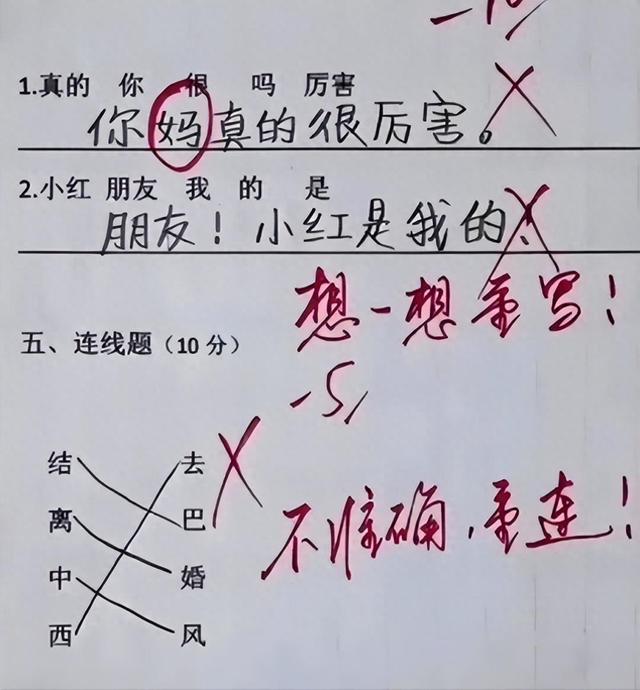 1.真的 你 很 吗 厉害
你妈真的很厉害。
2.小红 朋友 我 的 是
朋友！小红是我的、
想一想重写！
五、连线题（10 分）
-5
结 去
离 巴
不准确，重连！
中 婚
西 风